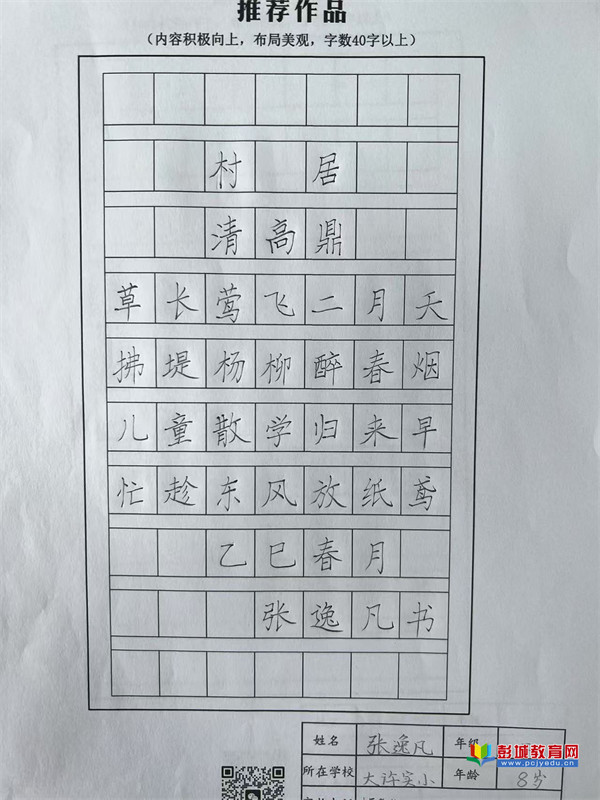 推荐作品
（内容积极向上，布局美观，字数40字以上）
村居
清高鼎
草长莺飞二月天
拂堤杨柳醉春烟
儿童散学归来早
忙趁东风放纸鸢
乙巳春月
张逸凡书
姓名 张逸凡 年级
所在学校 大许实小 年龄 8岁
彭城教育网
www.pcjyedu.cn